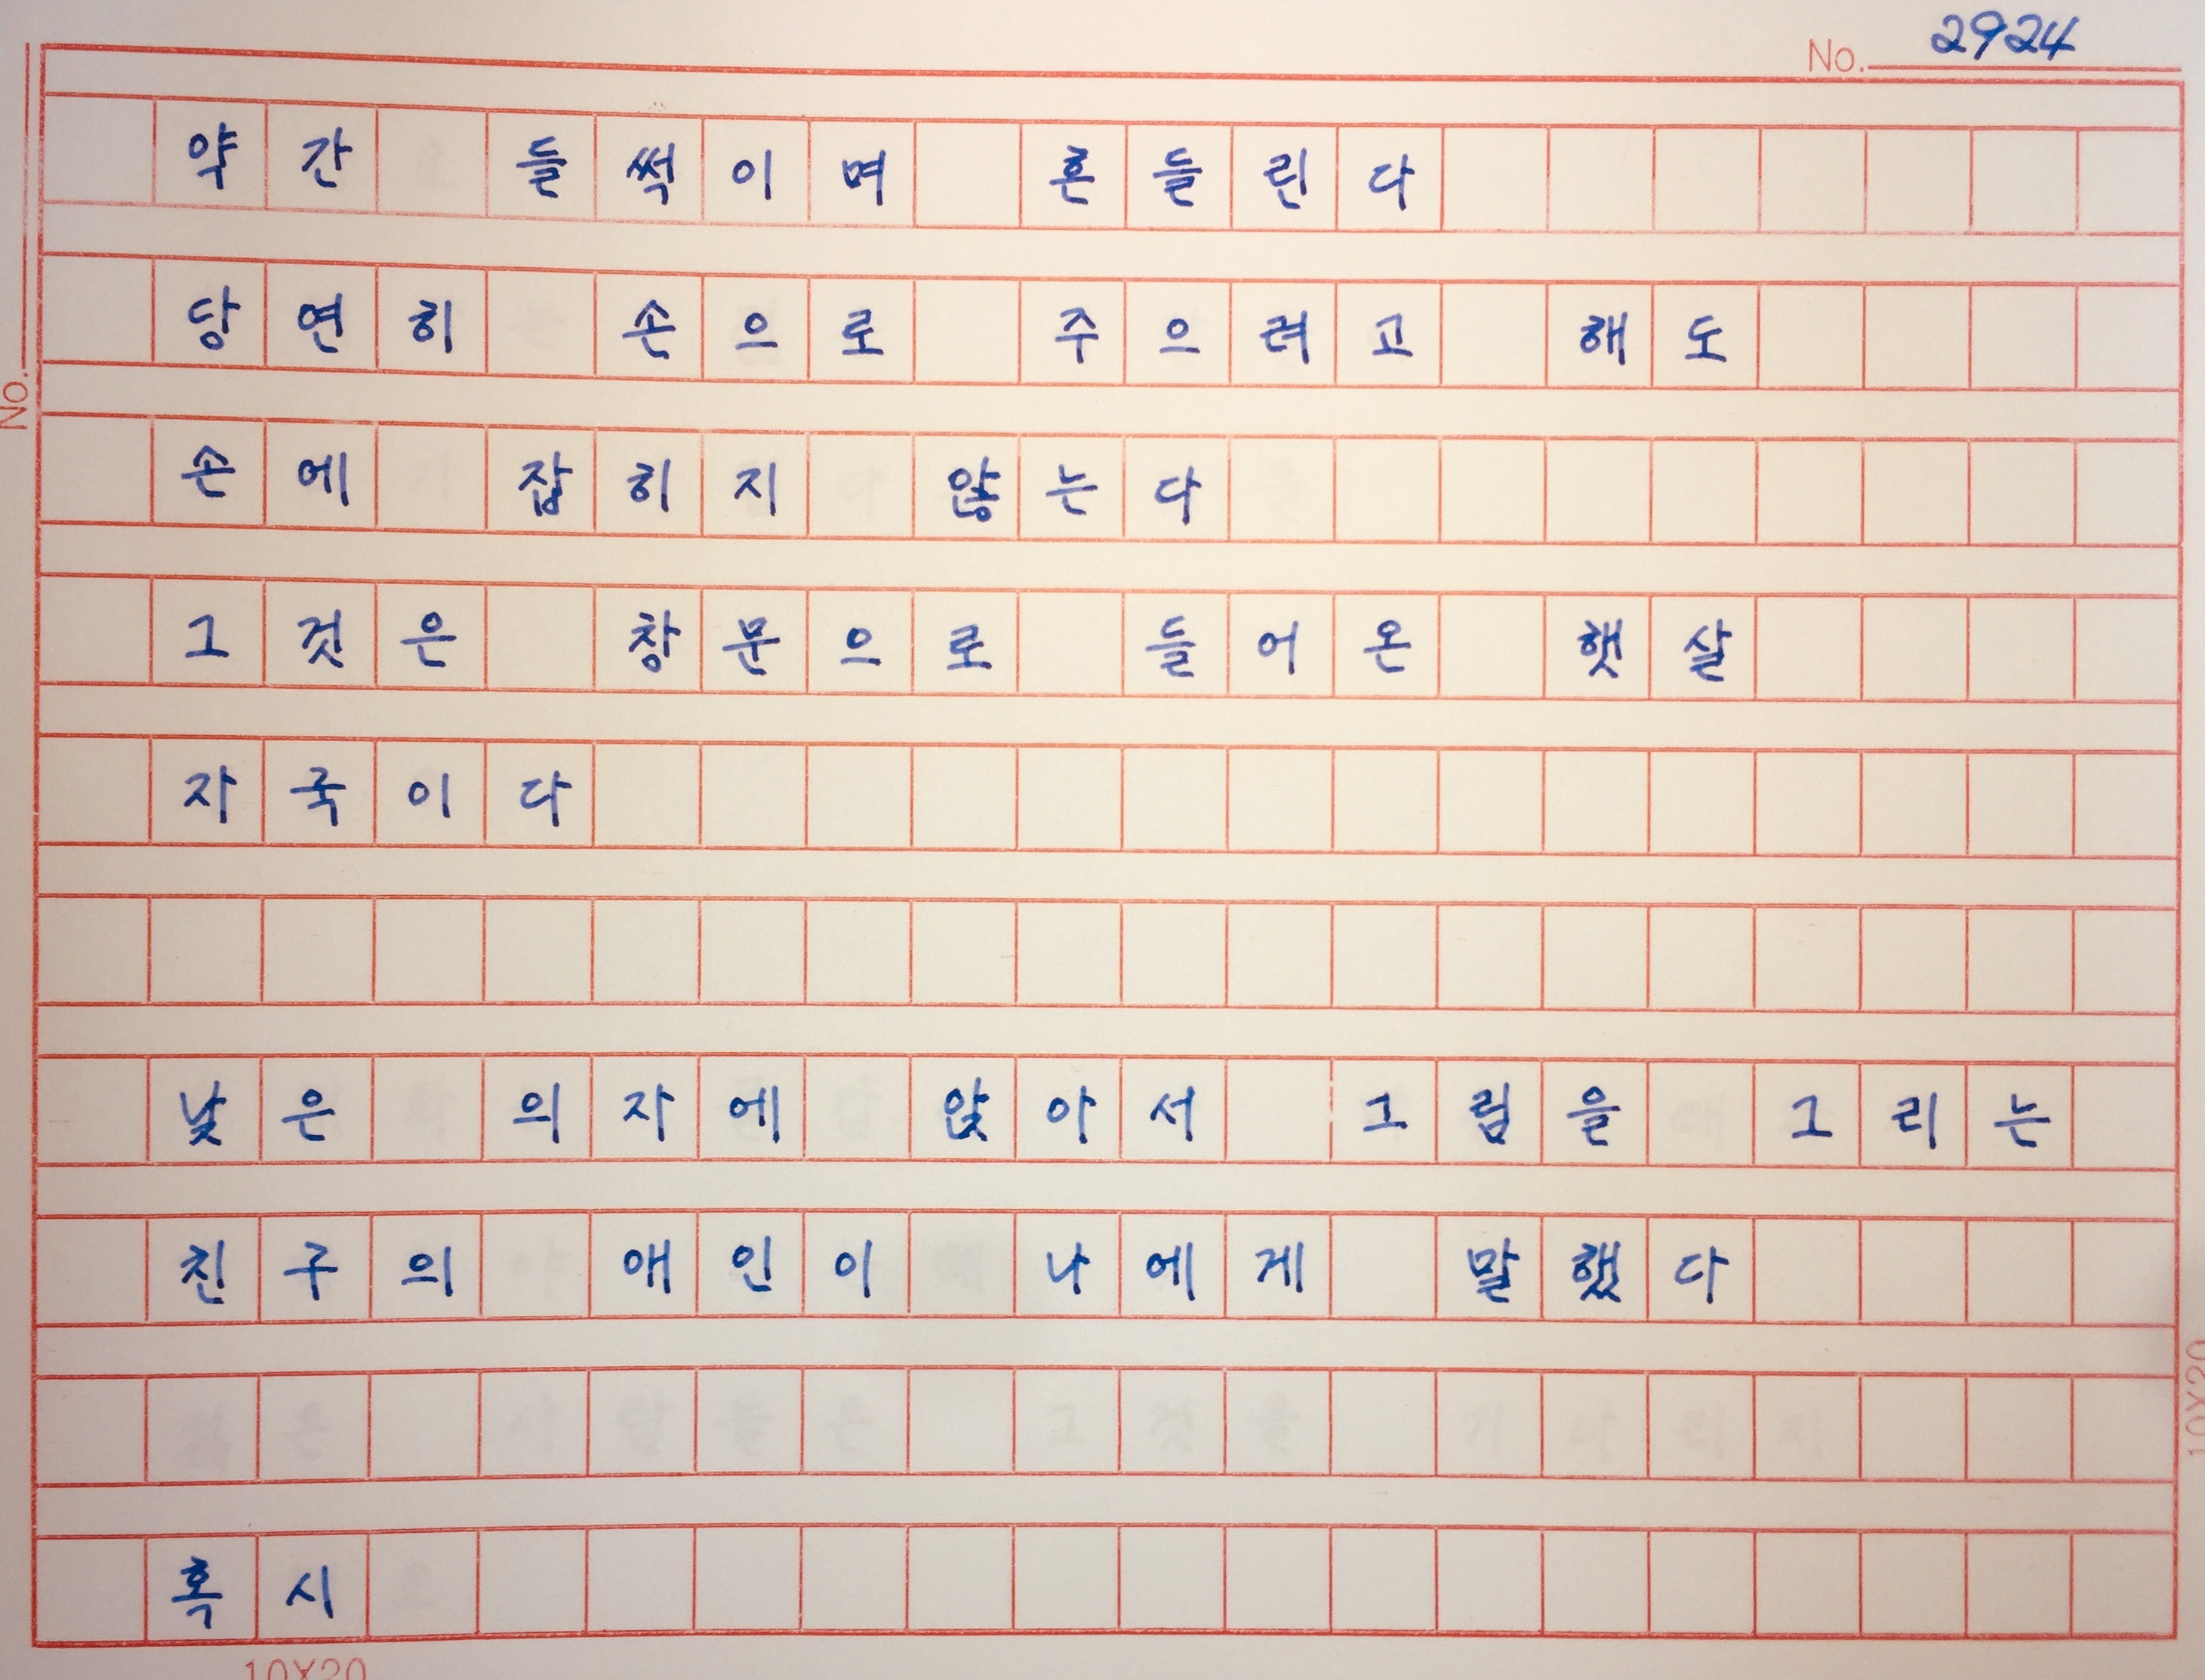 No. 2924
약간 들썩이며 흔들린다
당연히 손으로 주으려고 해도
손에 잡히지 않는다
그것은 창문으로 들어온 햇살
자국이다
낮은 의자에 앉아서 그림을 그리는
친구의 애인이 나에게 말했다
혹시
No.
10X20
10X20